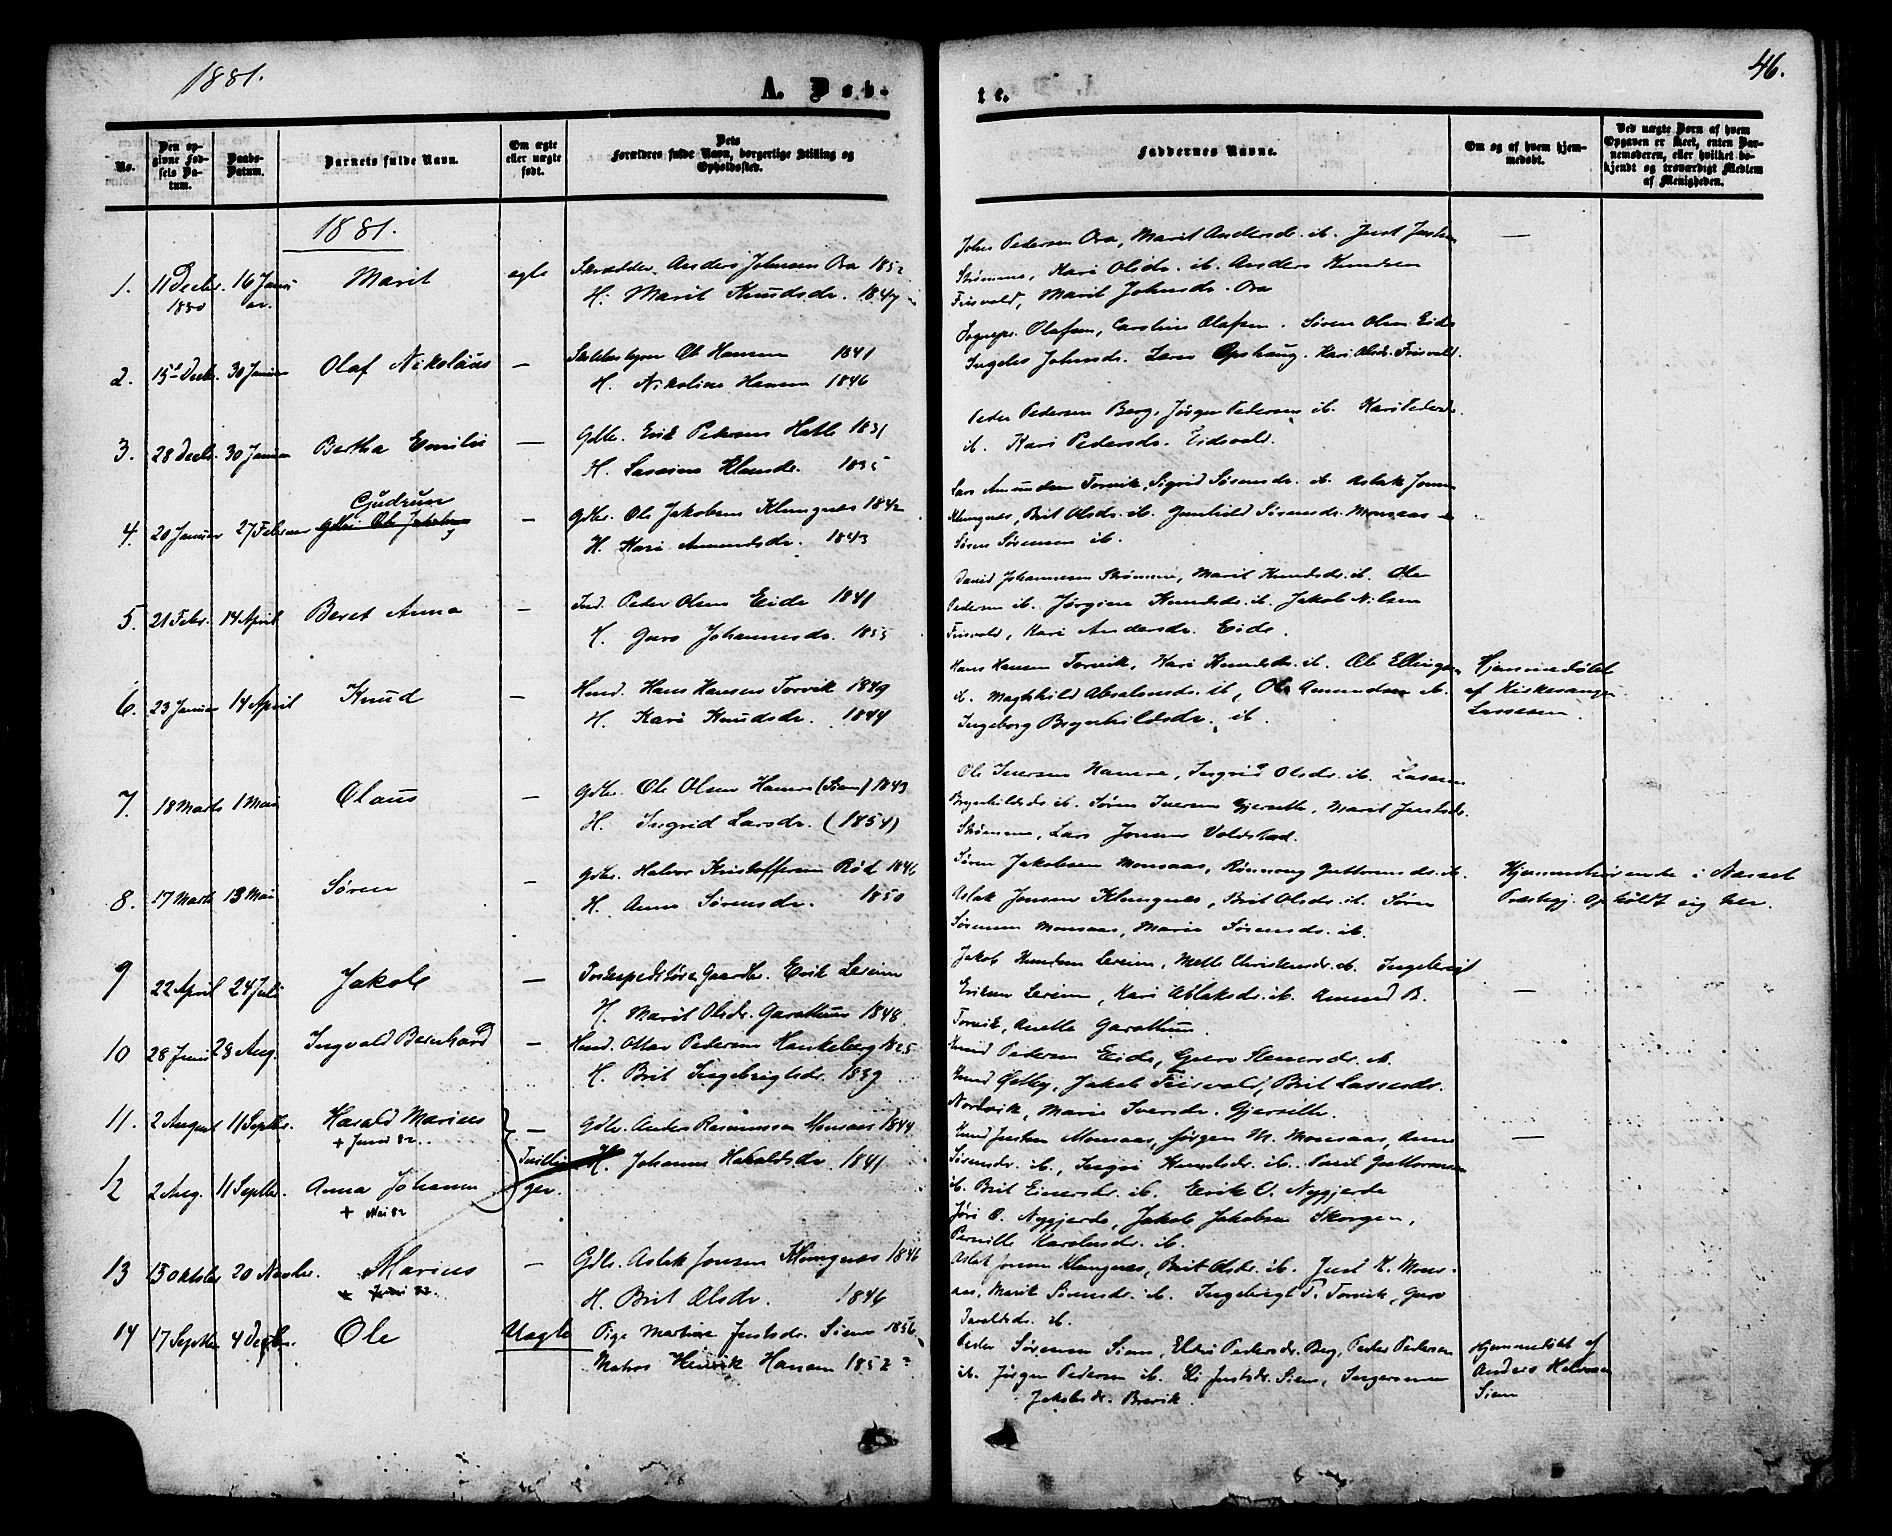 1881.
A. Døb-
te.
46.
No.
Den opgivne Fødsels Datum.
Daabs-Datum.
Barnets fulde Navn.
Om ægte eller uægte født.
Dets Forældres fulde Navn, borgerlige Stilling og Opholdssted.
Faddernes Navne.
Om og af hvem hjemmedøbt.
Ved uægte Børn af hvem Opgaven er skeet, enten Barnemoderen, eller hvilket bekjendt og troværdigt Medlem af Menigheden.
1881.
1. 11 Decbr. 1880 16 Januar. Marit ægte Skrædder Anders Johnsen Ora 1852
H. Marit Knudsdr. 1847
John Pedersen Ora, Marit Andersdr. ib. Just Justsen
Strømme, Kari Olsdr. ib. Anders Knudsen
Friisvold, Marit Johnsdr. Ora
2. 15 Decbr. 30 Januar Olaf Nikolaus — Ole Hansen 1841
H. Nikoline Hansen 1846
Olafsen, Caroline Olafsen. Søren Olsen Eide
Ingeleb Johnsdr. Lars Opshaug. Kari Olsdr. Friisvold.
3. 28 Decbr. 30 Januar Bertha Emilie — Gdbr. Erik Petersen Hatle 1831
H. 1835
Peder Pedersen Berg, Jørgen Petersen ib. Kari Pedersdr.
ib. Kari Pedersdr. Eidsvold.
4. 20 Januar 27 Februar Gudrun — Gdbr. Ole Jakobsen Klungnes 1842
H. Kari Amundsdr. 1843
Lars Amundsen Torvik, Sigrid Sørensdr. ib. Aslak Jonsen
Klungnes, Brit Olsdr. ib. Gunhild Sørensdr. Monsaas
Søren Sørensen ib.
5. 21 Febr. 14 April Beret Anna — Ind. Peder Olsen Eide 1841
H. Guro Johannesdr. 1855
David Johannesen Strømme, Marit Knudsdr. ib. Ole
Pedersen ib. Jørgine Knudsdr. ib. Jakob Nilsen
Friisvold, Kari Andersdr. Eide.
6. 23 Januar 14 April Knud — Hmd. Hans Hansen Torvik 1849
H. Kari Knudsdr. 1844
Hans Hansen Torvik, Kari Knudsdr. ib. Ole Ellingsen
ib. Maghild Absalonsdr. ib, Ole Amundsen ib.
Ingeborg Brynhildsdr. ib.
Hjemmedøbt
af Kirkesanger
Lassesen.
7. 18 Marts 1 Mai Claus — Gdbr. Ole Olsen Hamre (Siem) 1843
H. Ingrid Larsdr. (1854)
Ole Iversen Hamre, Ingrid Olsdr. ib. Lassesen
Brynhildsdr. ib. Søren Iversen Gjersette, Marit Justsdr.
Strømme, Lars Jonsen Voldstad.
8. 17 Marts 13 Mai Søren — Gdbr. Halvor Kristoffersen Rød 1846
H. Anne Sørensdr. 1850
Søren Jakobsen Monsaas, Rønnaug Guttormsdr. ib.
Aslak Jonsen Klungnes, Brit Olsdr. ib. Søren
Sørensen Monsaas, Marie Sørensdr. ib.
Hjemmehørende i Nesset
Præstegj. opholdt sig her.
9 22 April 24 Juli Jakob — Gaardbr. Erik Lereim
H. Marit Olsdr. Garathun 1848.
Jakob Knudsen Lereim, Mette Christensdr. ib. Ingebrigt
Eriksen Lereim, Kari Aslaksdr. ib. Amund B.
Torvik, Anette Garathun.
10 28 Juni 28 Aug. Ingvald Bernhard — Hmd. Ottar Pedersen Hankeberg 1825
H. Brit Ingebrigtsdr. 1839
Knud Pedersen Eide, Guro Steinersdr. ib.
Knud Østby, Jakob Friisvold, Brit Lassesdr.
Nordvik, Marie Iversdr. Gjersette.
11. 2 August 11 Septbr. Harald Marius — Gdbr. Anders Rasmussen Monsaas 1844
+ Juni 82.
Tvillinger. H. Johanne Haraldsdr. 1841
12 2 Aug. 11 Septbr. Anna Johanna
+ Mai 82
Knud Justsen Monsaas, Jørgen M. Monsaas, Anne
Sørensdr. ib., Knudsdr. ib. Guttormsen
ib. Brit Einersdr. ib. Eirik O. Nygjerde
Jøri O. Nygjerde, Jakob Jakobsen Skorgen,
Pernille Karolusdr. ib.
13 15 Oktober 20 Novbr. Marius — Gdbr. Aslak Jonsen Klungnes 1846
+ Juni 82.
H. Brit Olsdr. 1846
Aslak Jonsen Klungnes, Brit Olsdr. ib. Just K. Mons-
aas, Marit Sørensdr. ib. Ingebrigt T. Torvik, Guro
ib.
14 17 Septbr 4 Decbr. Ole Uægte Pige Martine Justsdr. Siem 1856
Matros Henrik Hansen 1852
Peder Sørensen Siem, Eldri Pedersdr. Berg, Peder Pedersen
ib. Jørgen Pedersen ib. Eli Justsdr. Siem, Ingersanne
Jakobsdr. Brevik.
Hjemmedøbt af
Anders Halvorsen
Siem